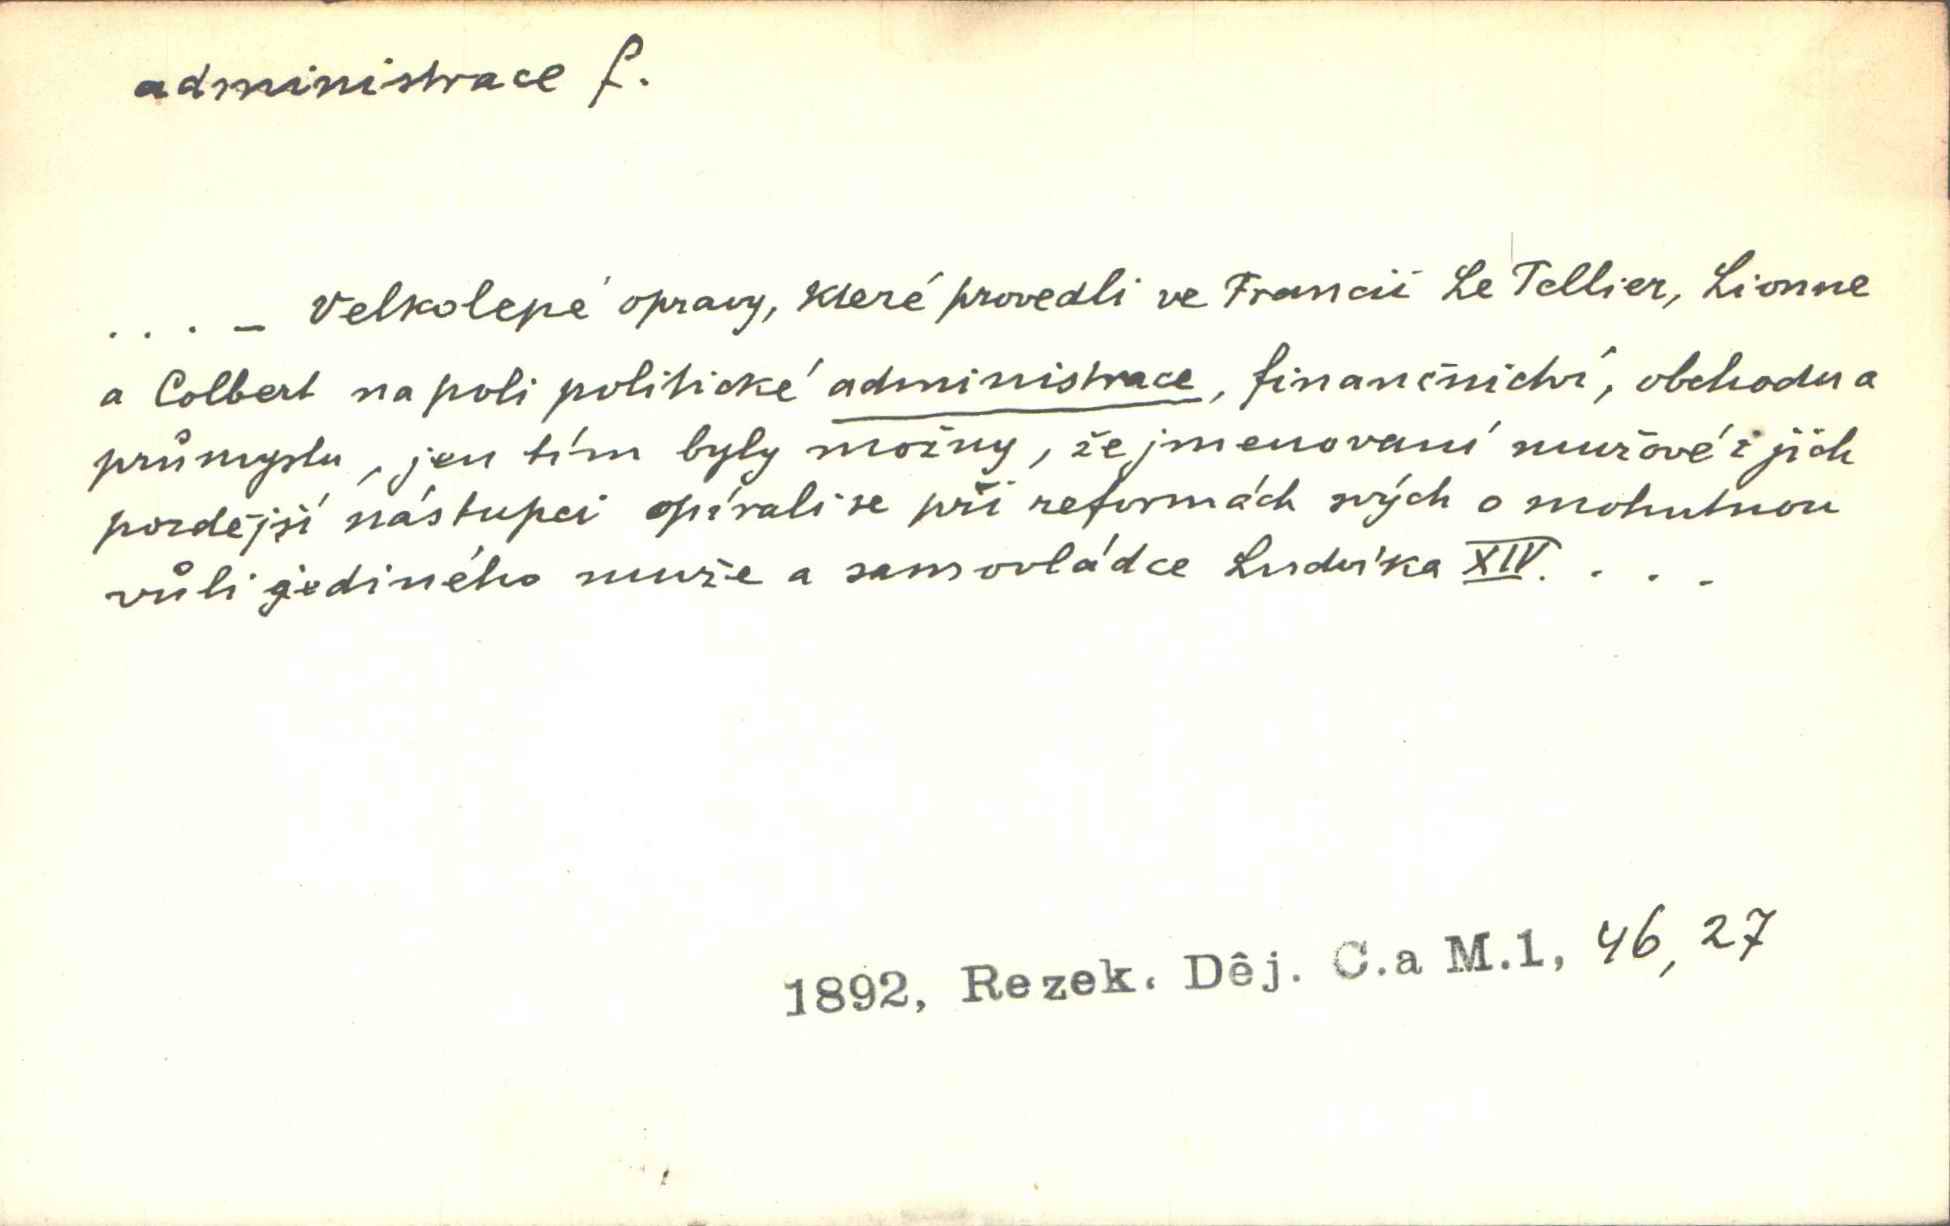 administrace f.
... – Velkolepé opravy, které provedli ve Francii Le Tellier, Lionne
a Colbert na poli politické administrace, finančnictví, obchodu a
průmyslu, jen tím byly možny, že jmenovaní mužové i jich
pozdější nástupci opírali se při reformách svých o mohutnou
vůli jediného muže a samovládce Ludvíka XIV. ...
1892, Rezek. Děj. C.a M.1, 46, 27